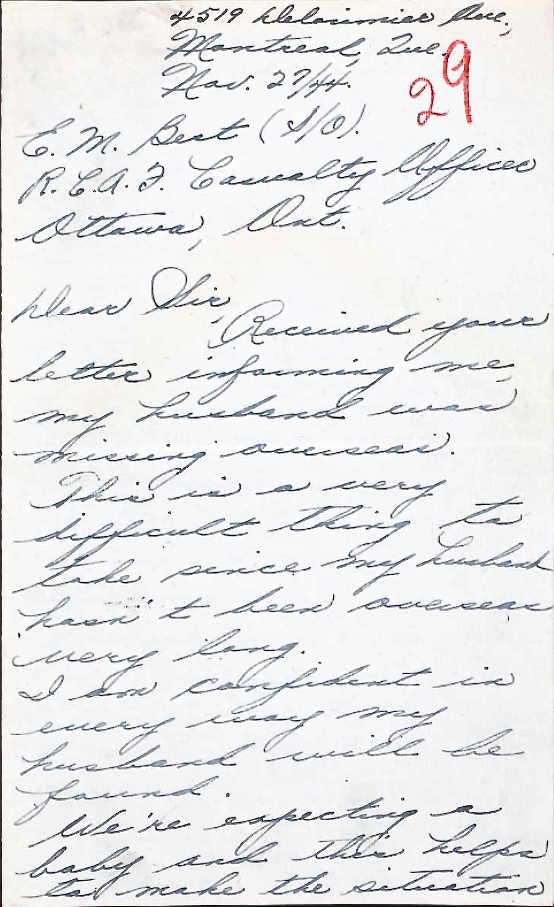 4519 Delorimier Ave.,
Montreal, Que.
Nov. 27/44.
29
E. M. Best (S/O).
R.C.A.F. Casualty Officer
Ottawa, Ont.
Dear Sir,
Received your
letter informing me
my husband was
missing overseas.
This is a very
difficult thing to
take since my husband
hasn't been overseas
very long.
I am confident in
every way my
husband will be
found.
We're expecting a
baby and this helps
to make the situation